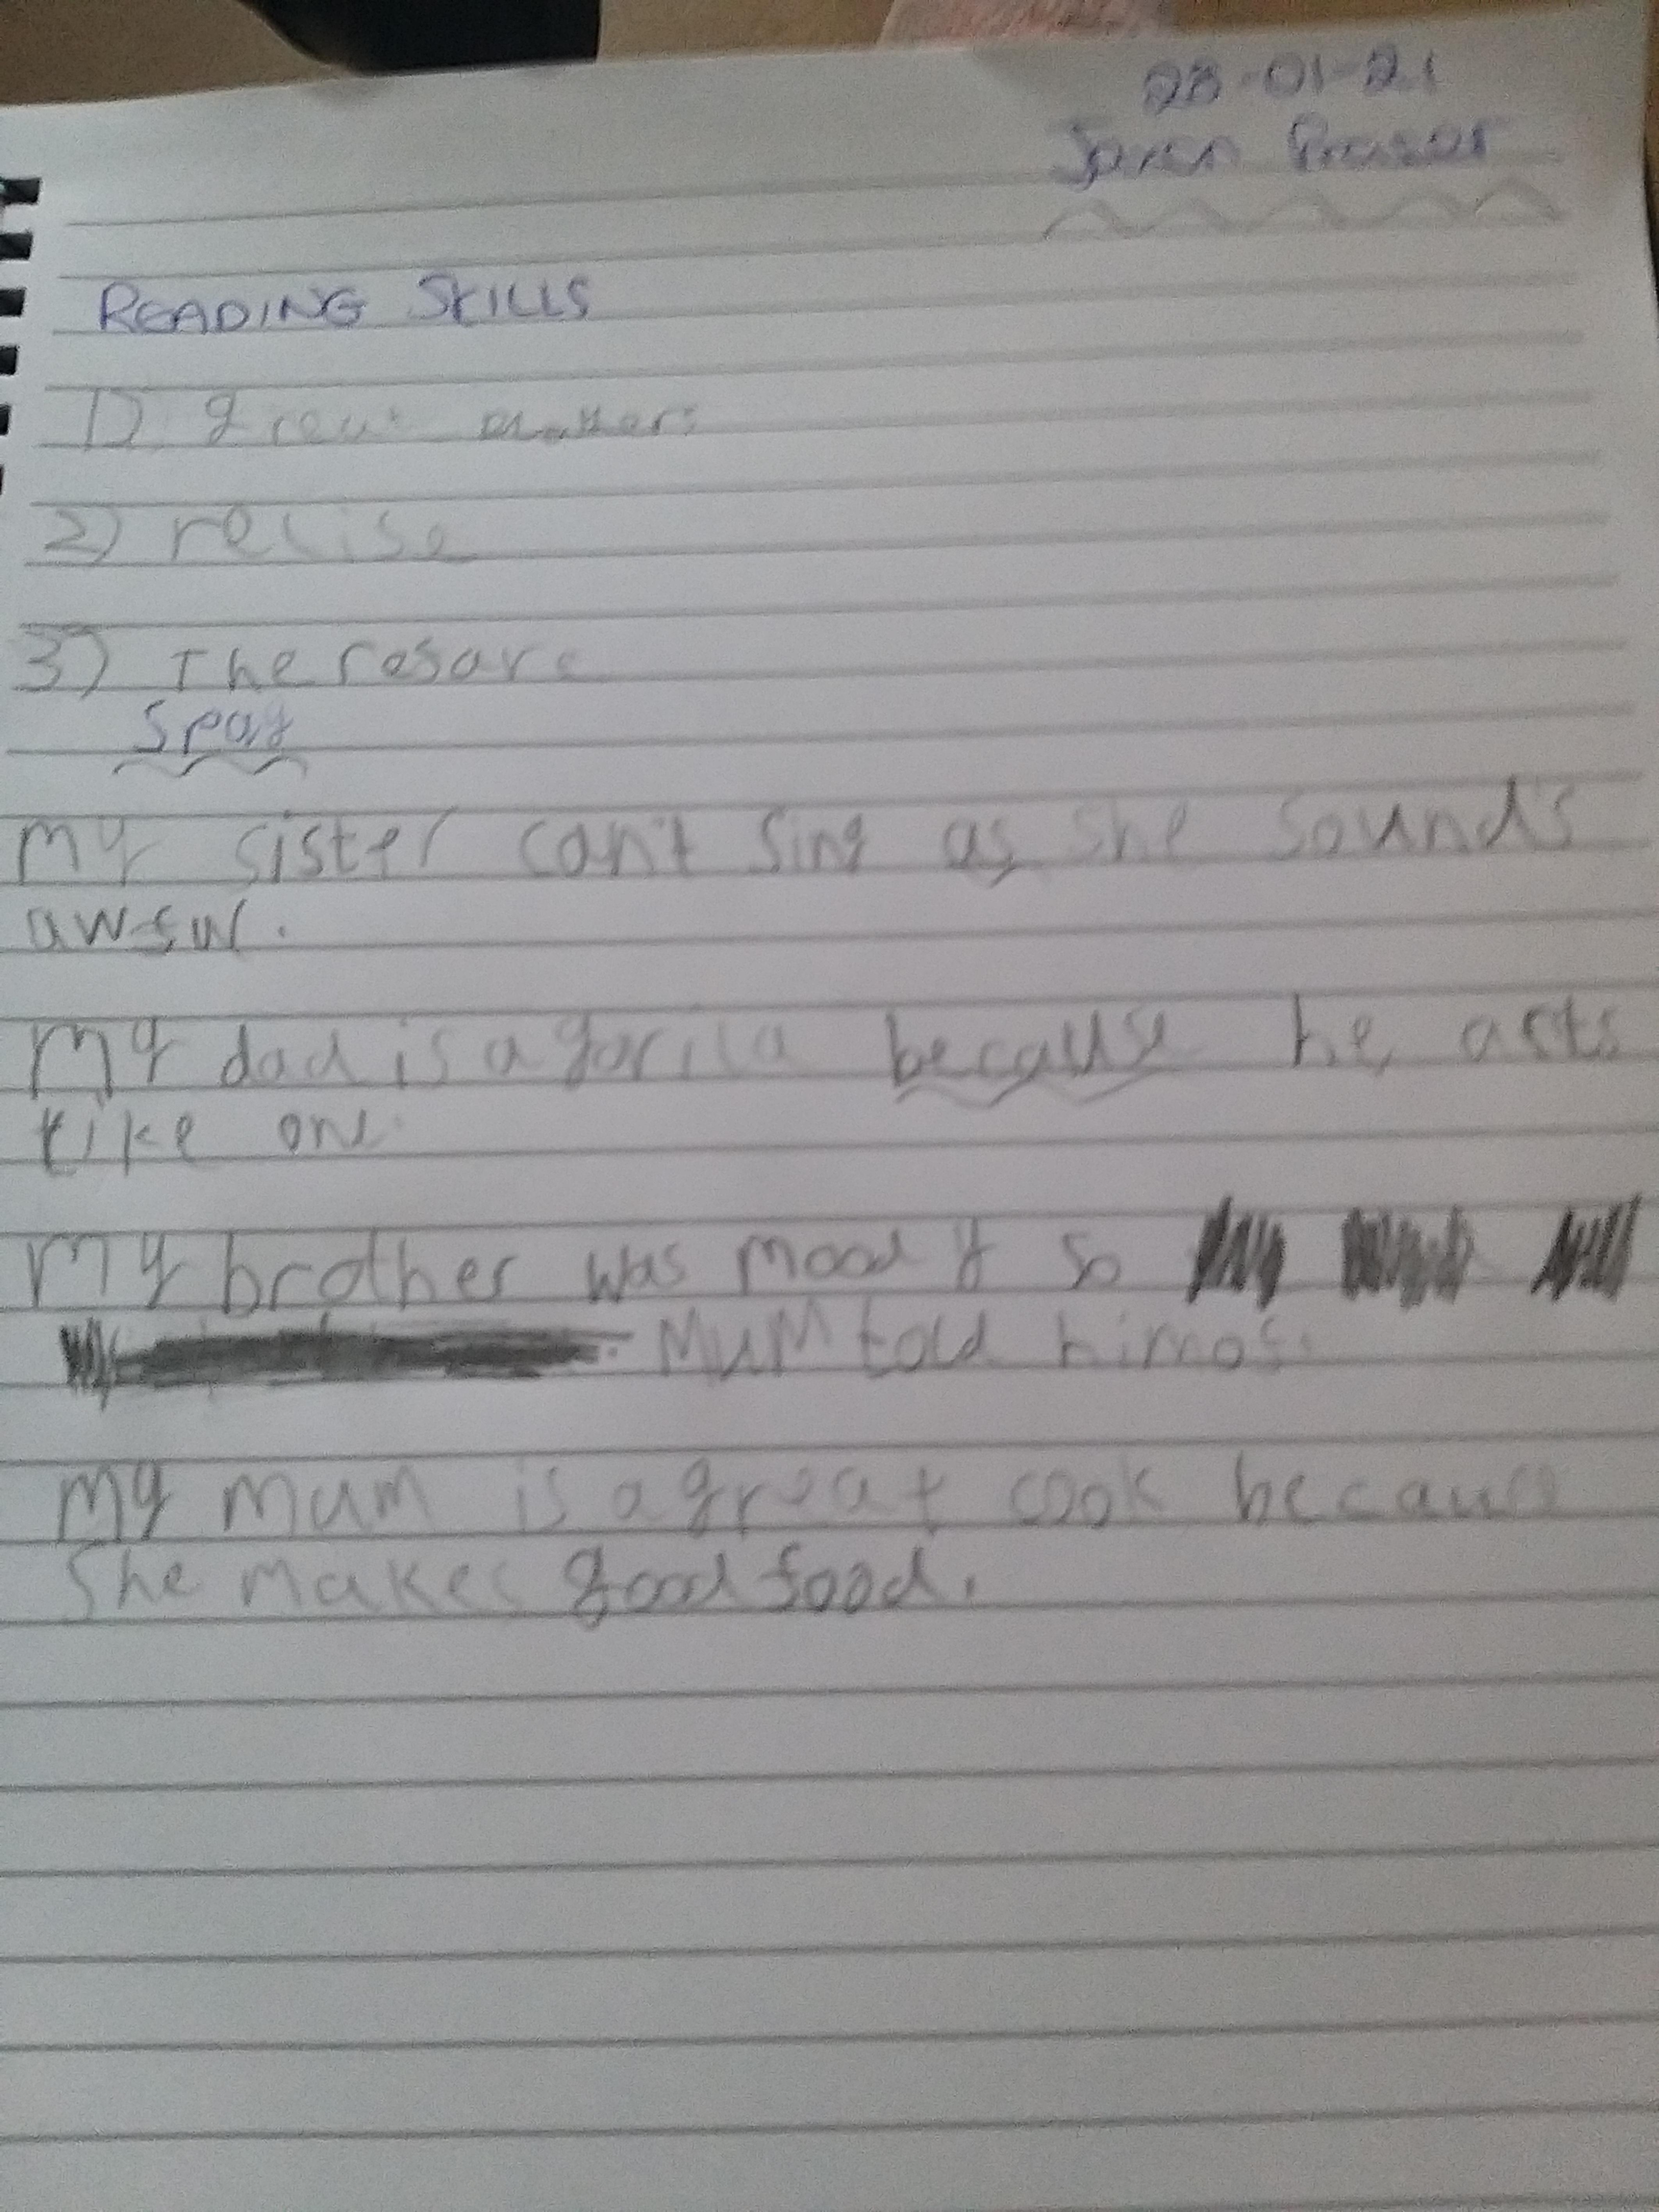 28-01-21
READING SKILLS
1)
2) relise
3) The resore
Spag
My sister can't sing as she sound's
awful.
My dad is a gorila because he acts
like one.
My brother was moody so
Mum told him of.
My mum is a great cook because
She makes good food.